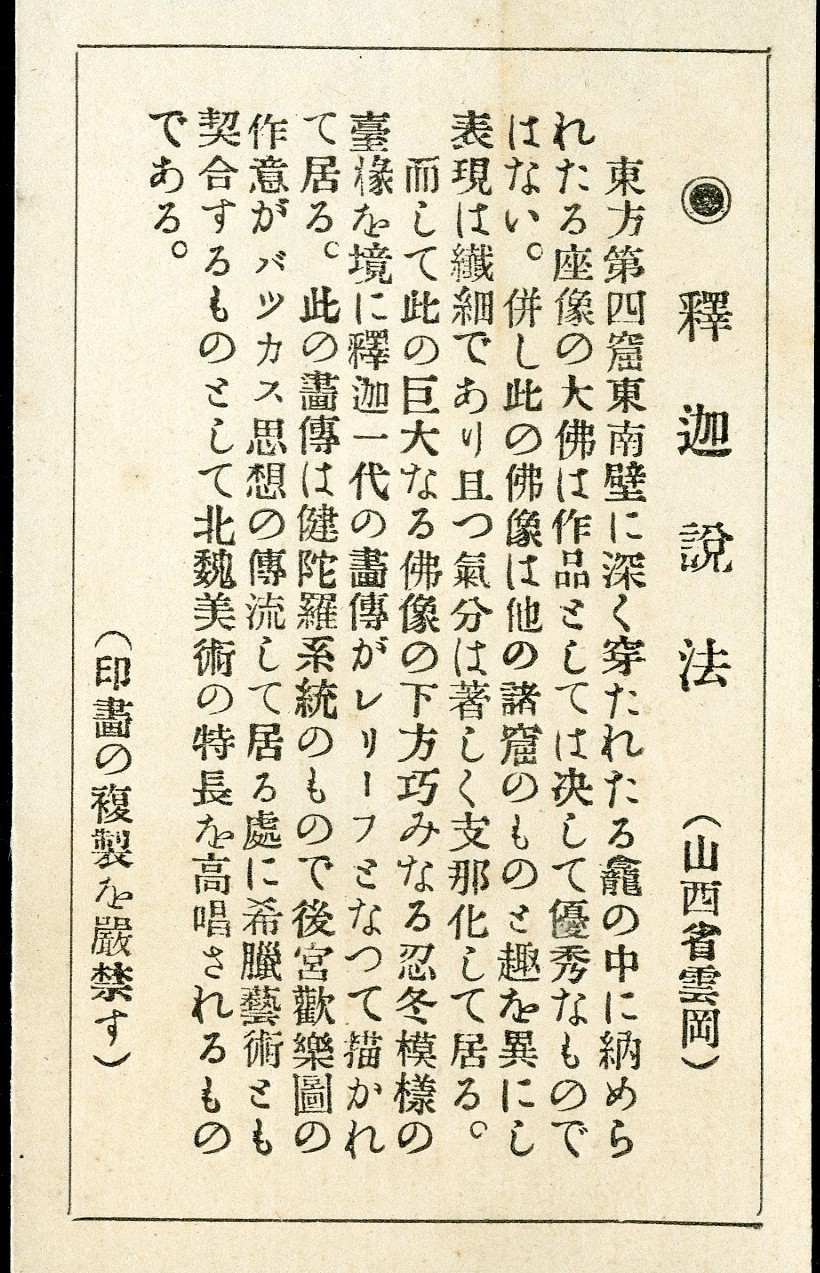 ◉釋迦說法（山西省雲岡）
東方第四窟東南壁に深く穿たれたる龕の中に納めら
れたる座像の大佛は作品としては决して優秀なもので
はない。併し此の佛像は他の諸窟のものと趣を異にし
表現は纖細であり且つ氣分は著しく支那化して居る。
而して此の巨大なる佛像の下方巧みなる忍冬模樣の
臺椽を境に釋迦一代の畵傳がレリーフとなつて描かれ
て居る。此の畵傳は健陀羅系統のもので後宮歡樂圖の
作意がバツカス思想の傳流して居る處に希臘藝術とも
契合するものとして北魏美術の特長を高唱されるもの
である。
（印畵の複製を嚴禁す）